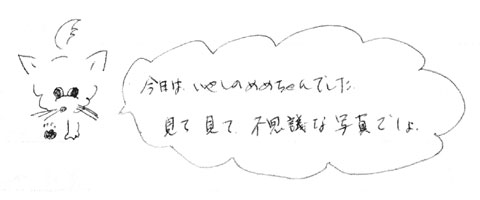 今日は、いやしのめめちゃんでした。
見て見て、不思議な写真でしょ。